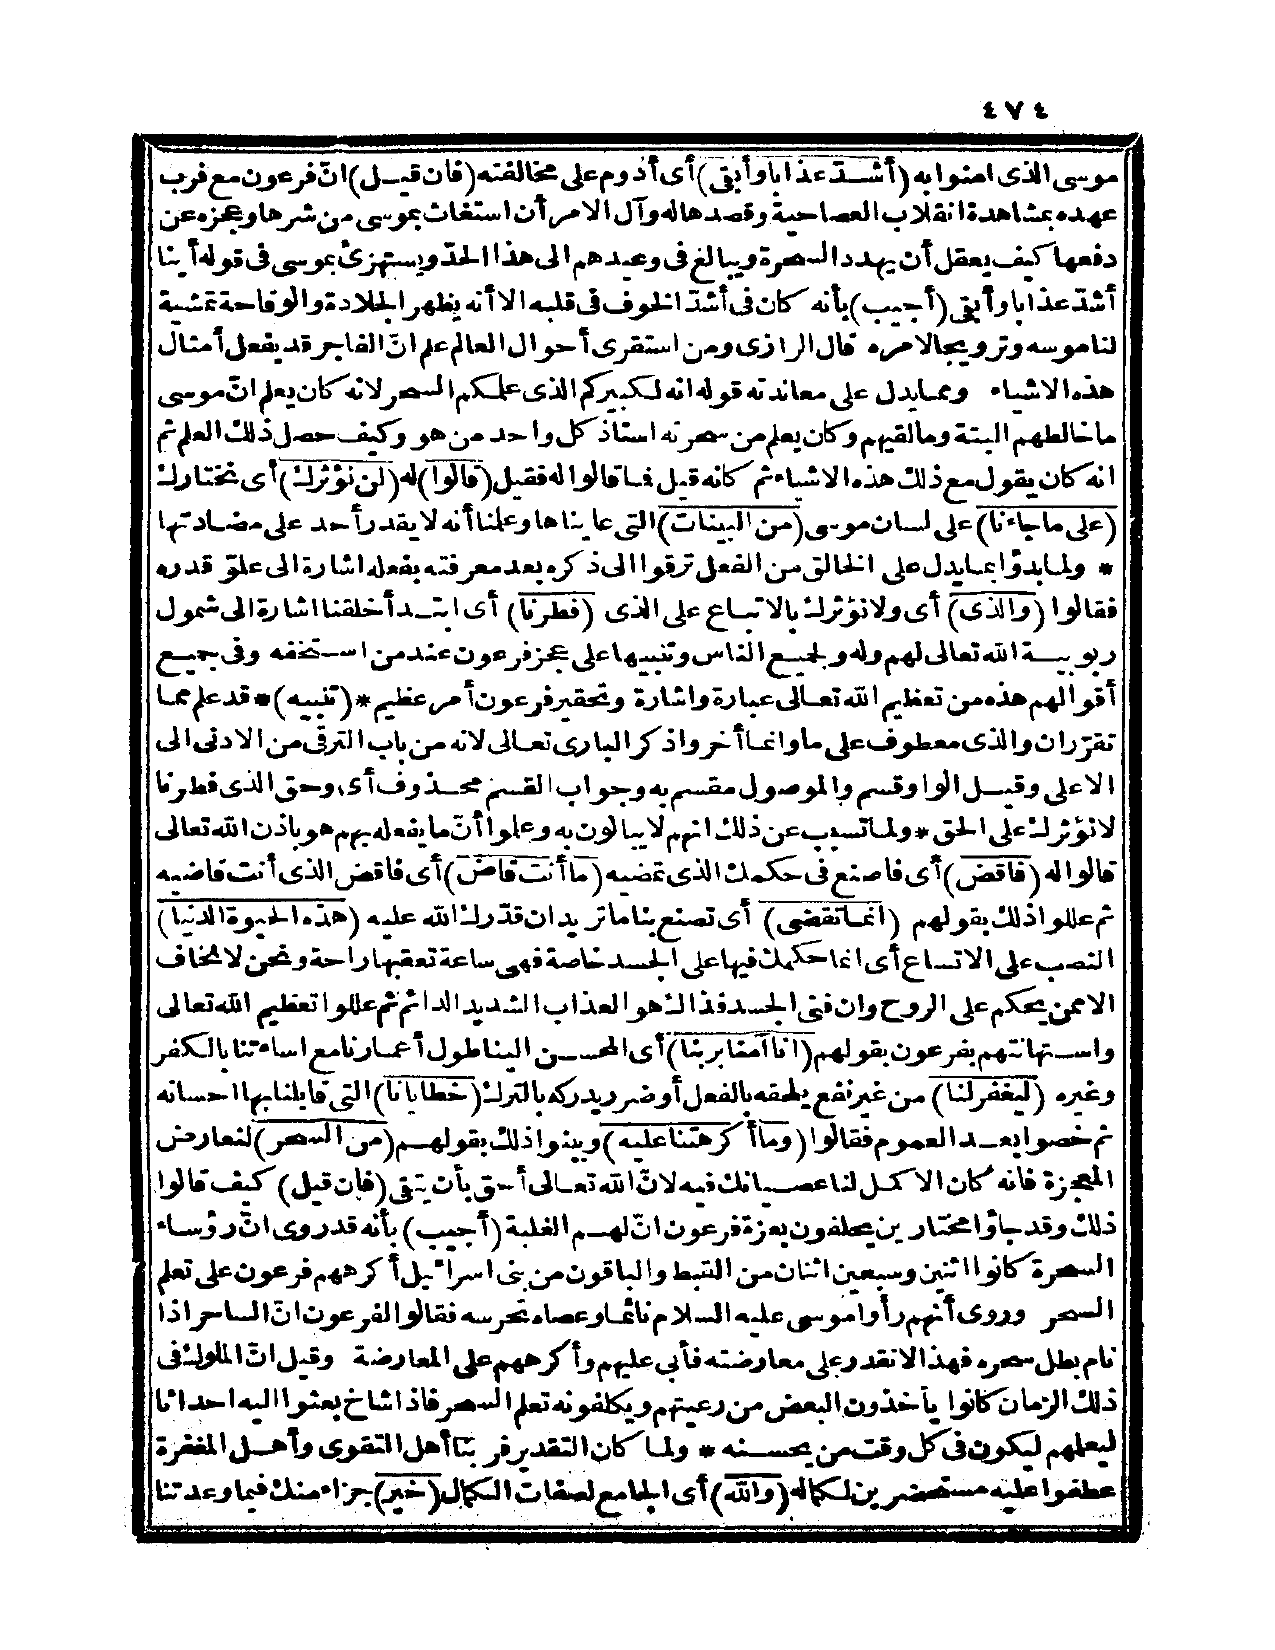 ٤٧٤
موسى الذى امنوا به (أشـد عذابا وأبقى) أى أدوم على مخالفته (فان قيـل) انّ فرعون مع قرب
عهده بمشاهدة انقلاب العصا حية وقصدها له وآل الامر أن استغاث بموسى من شرها وعجزه عن
دفعها كيف يعقل أن يهدد السحرة ويبالغ فى وعيدهم الى هذا الحدّ ويستهزئ بموسى فى قوله أينا
أشدّ عذابا وأبقى (أجيب) بأنه كان فى أشدّ الخوف فى قلبه الا أنه يظهر الجلادة والوقاحة تمشية
لناموسه وترويجا لامره قال الرازى ومن استقرى أحوال العالم علم انّ الفاجر قد يفعل أمثال
هذه الاشياء ومما يدل على معاندته قوله انه لكبيركم الذى علمكم السحر لانه كان يعلم انّ موسى
ما خالطهم البتة وما لقيهم وكان يعلم من سحرته استاذ كل واحد من هو وكيف حصل ذلك العلم ثم
انه كان يقول مع ذلك هذه الاشياء ثم كانه قيل فما قالوا له فقيل (قالوا) له (لن نؤثرك) أى نختارك
(على ما جاءنا) على لسان موسى (من البينات) التى عايناها وعلمنا أنه لا يقدر أحد على مضادتها
* ولما بدؤا بما يدل على الخالق من الفعل ترقوا الى ذكره بعد معرفته بفعله اشارة الى علوّ قدره
فقالوا (والذى) أى ولا نؤثرك بالاتباع على الذى (فطرنا) أى ابتـدأ خلقنا اشارة الى شمول
ربوبيـة الله تعالى لهم وله ولجميع الناس وتنبيها على عجز فرعون عند من استخفه وفى جميع
أقوالهم هذه من تعظيم الله تعـالى عبارة واشارة وتحقير فرعون أمر عظيم * (تنبيه) * قد علم مما
تقرّر ان والذى معطوف على ما وانما أخر واذكر البارى تعالى لانه من باب الترقى من الادنى الى
الاعلى وقيـل الواو قسم والموصول مقسم به وجواب القسم محـذوف أى وحق الذى فطرنا
لا نؤثرك على الحق * ولما تسبب عن ذلك انهم لا يبالون به وعلموا أنّ ما يفعله بهم هو باذن الله تعالى
قالوا له (فاقض) أى فاصنع فى حكمك الذى تمضيه (ما أنت قاض) أى فاقض الذى أنت قاضيه
ثم عللوا ذلك بقولهم (انما تقضى) أى تصنع بنا ما تريد ان قدّرك الله عليه (هذه الحيوة الدنيا)
النصب على الاتساع أى انما حكمك فيها على الجسد خاصة فهى ساعة تعقبها راحة ونحن لا نخاف
الا ممن يحكم على الروح وان فنى الجسد فذاك هو العذاب الشديد الدائم ثم عللوا تعظيم الله تعالى
واسـتهانتهم بفرعون بقولهم (انا آمنا بربنا) أى المحسـن الينا طول أعمارنا مع اساءتنا بالكفر
وغيره (ليغفر لنا) من غير نفع يلحقه بالفعل أو ضرر يدركه بالترك (خطايانا) التى قابلنا بها احسانه
ثم خصوا بعـد العموم فقالوا (وما أكرهتنا عليه) وبينوا ذلك بقولهـم (من السحر) لتعارض
المعجزة فانه كان الاكمل لنا عصـيانك فيه لانّ الله تعـالى أحق بأن يتقى (فان قيل) كيف قالوا
ذلك وقد جاؤا مختارين يحلفون بعزة فرعون انّ لهـم الغلبة (أجيب) بأنه قد روى انّ رؤساء
السحرة كانوا اثنين وسبعين اثنان من القبط والباقون من بنى اسرائيل أكرههم فرعون على تعلم
السحر وروى أنهم رأوا موسى عليه السلام نائما وعصاه تحرسه فقالوا لفرعون انّ الساحر اذا
نام بطل سحره فهذا لا نقدر على معارضته فأبى عليهم وأكرههم على المعارضة وقيل انّ الملوك فى
ذلك الزمان كانوا يأخذون البعض من رعيتهم ويكلفونه تعلم السحر فاذا شاخ بعثوا اليه احداثا
ليعلمهم ليكون فى كل وقت من يحسنه * ولما كان التقدير فربنا أهل التقوى وأهـل المغفرة
عطفوا عليه مستحضرين لكماله (والله) أى الجامع لصفات الكمال (خير) جزاء منك فيما وعدتنا